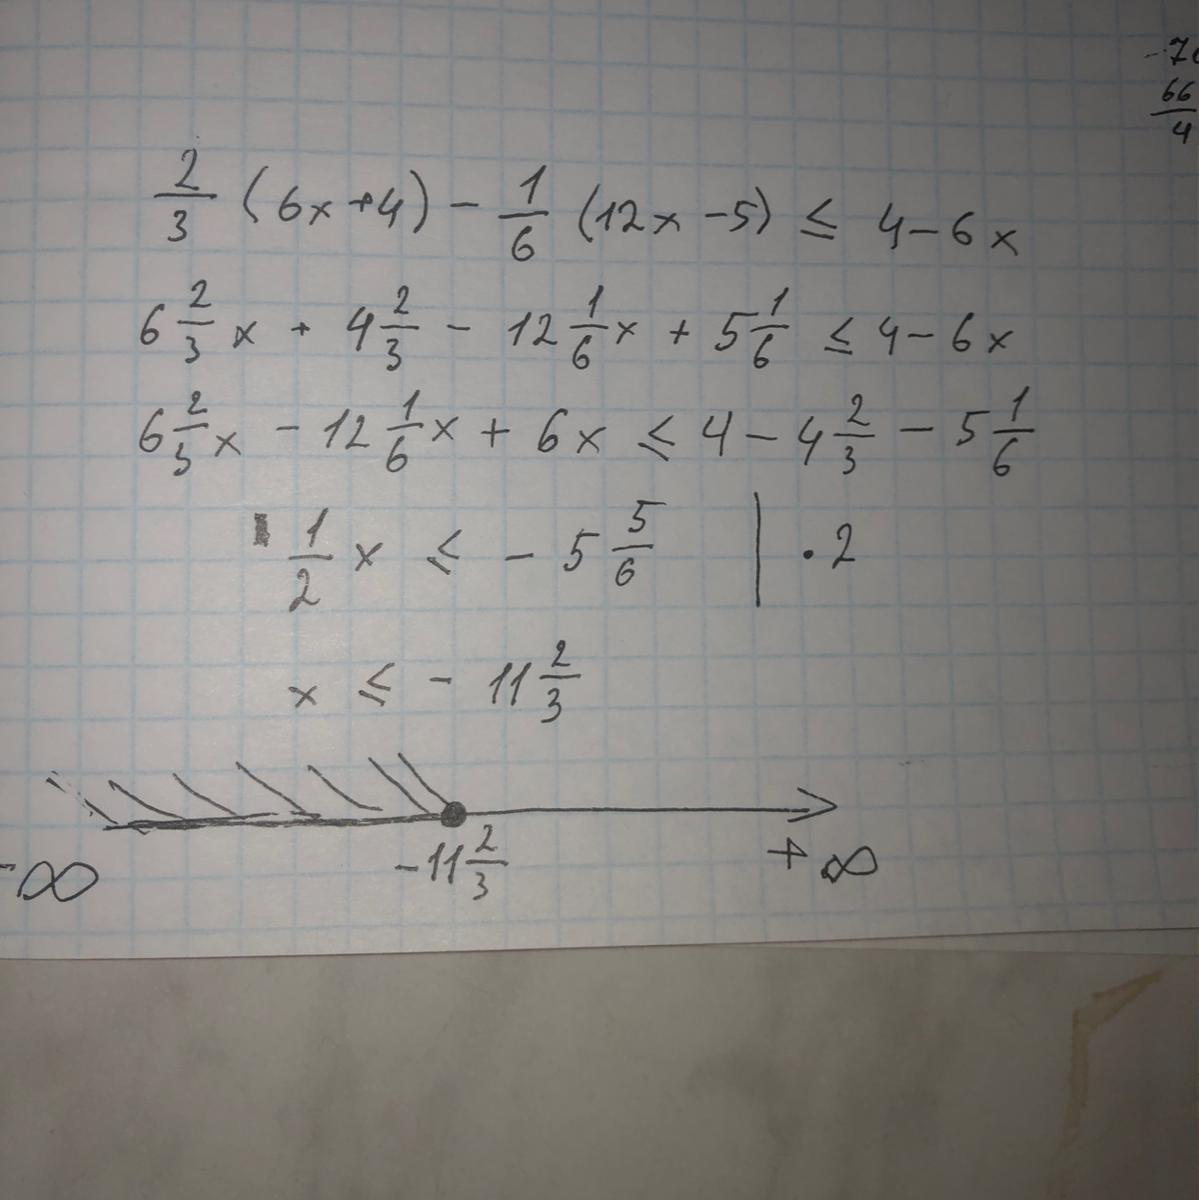 -70
66
4
2/3 (6x+4) - 1/6 (12x-5) ≤ 4-6x
6 2/3 x + 4 2/3 - 12 1/6 x + 5 1/6 ≤ 4-6x
6 2/3 x - 12 1/6 x + 6x ≤ 4 - 4 2/3 - 5 1/6
1/2 x ≤ - 5 5/6 | · 2
x ≤ - 11 2/3
-∞ -11 2/3 +∞